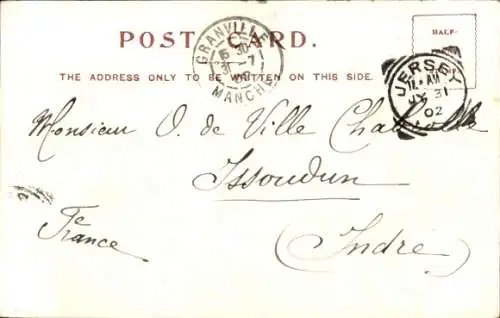 POST CARD.
HALF-
GRANVILLE
MANCHE
JERSEY
JY 31
02
THE ADDRESS ONLY TO BE WRITTEN ON THIS SIDE.
Monsieur O. de Ville
Issoudun
(Indre)
France